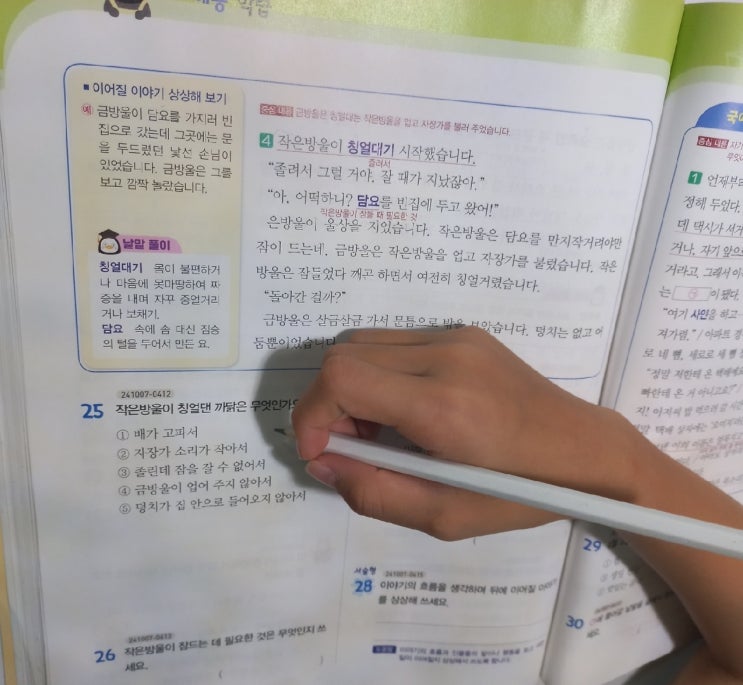 ■ 이어질 이야기 상상해 보기
예 금방울이 담요를 가지러 빈
집으로 갔는데 그곳에는 문
을 두드렸던 낯선 손님이
있었습니다. 금방울은 그를
보고 깜짝 놀랐습니다.
낱말 풀이
칭얼대기 몸이 불편하거
나 마음에 못마땅하여 짜
증을 내며 자꾸 중얼거리
거나 보채기.
담요 속에 솜 대신 짐승
의 털을 두어서 만든 요.
중심 내용 금방울은 칭얼대는 작은방울을 업고 자장가를 불러 주었습니다.
4 작은방울이 칭얼대기 시작했습니다.
졸려서
“졸려서 그럴 거야. 잘 때가 지났잖아.”
“아, 어떡하니? 담요를 빈집에 두고 왔어!”
작은방울이 잠들 때 필요한 것
은방울이 울상을 지었습니다. 작은방울은 담요를 만지작거려야만
잠이 드는데. 금방울은 작은방울을 업고 자장가를 불렀습니다. 작은
방울은 잠들었다 깨고 하면서 여전히 칭얼거렸습니다.
“돌아간 걸까?”
금방울은 살금살금 가서 문틈으로 밖을 보았습니다. 덩치는 없고 어
둠뿐이었습니다
241007-0412
25 작은방울이 칭얼댄 까닭은 무엇인가요
① 배가 고파서
② 자장가 소리가 작아서
③ 졸린데 잠을 잘 수 없어서
④ 금방울이 업어 주지 않아서
⑤ 덩치가 집 안으로 들어오지 않아서
241007-0413
26 작은방울이 잠드는 데 필요한 것은 무엇인지 쓰
세요.
( )
서술형 241007-0415
28 이야기의 흐름을 생각하며 뒤에 이어질 이야기
를 상상해 쓰세요.
국어
중심 내용
1 언제부
정해 두었다.
데 택시가 서
거나, 자기 앞으
거라고. 그래서 이
는 이 됐다.
“여기 사인을 하고
져가렴.” / 아파트
로 네 뼘, 세로로 세 뼘
29
30
세요.